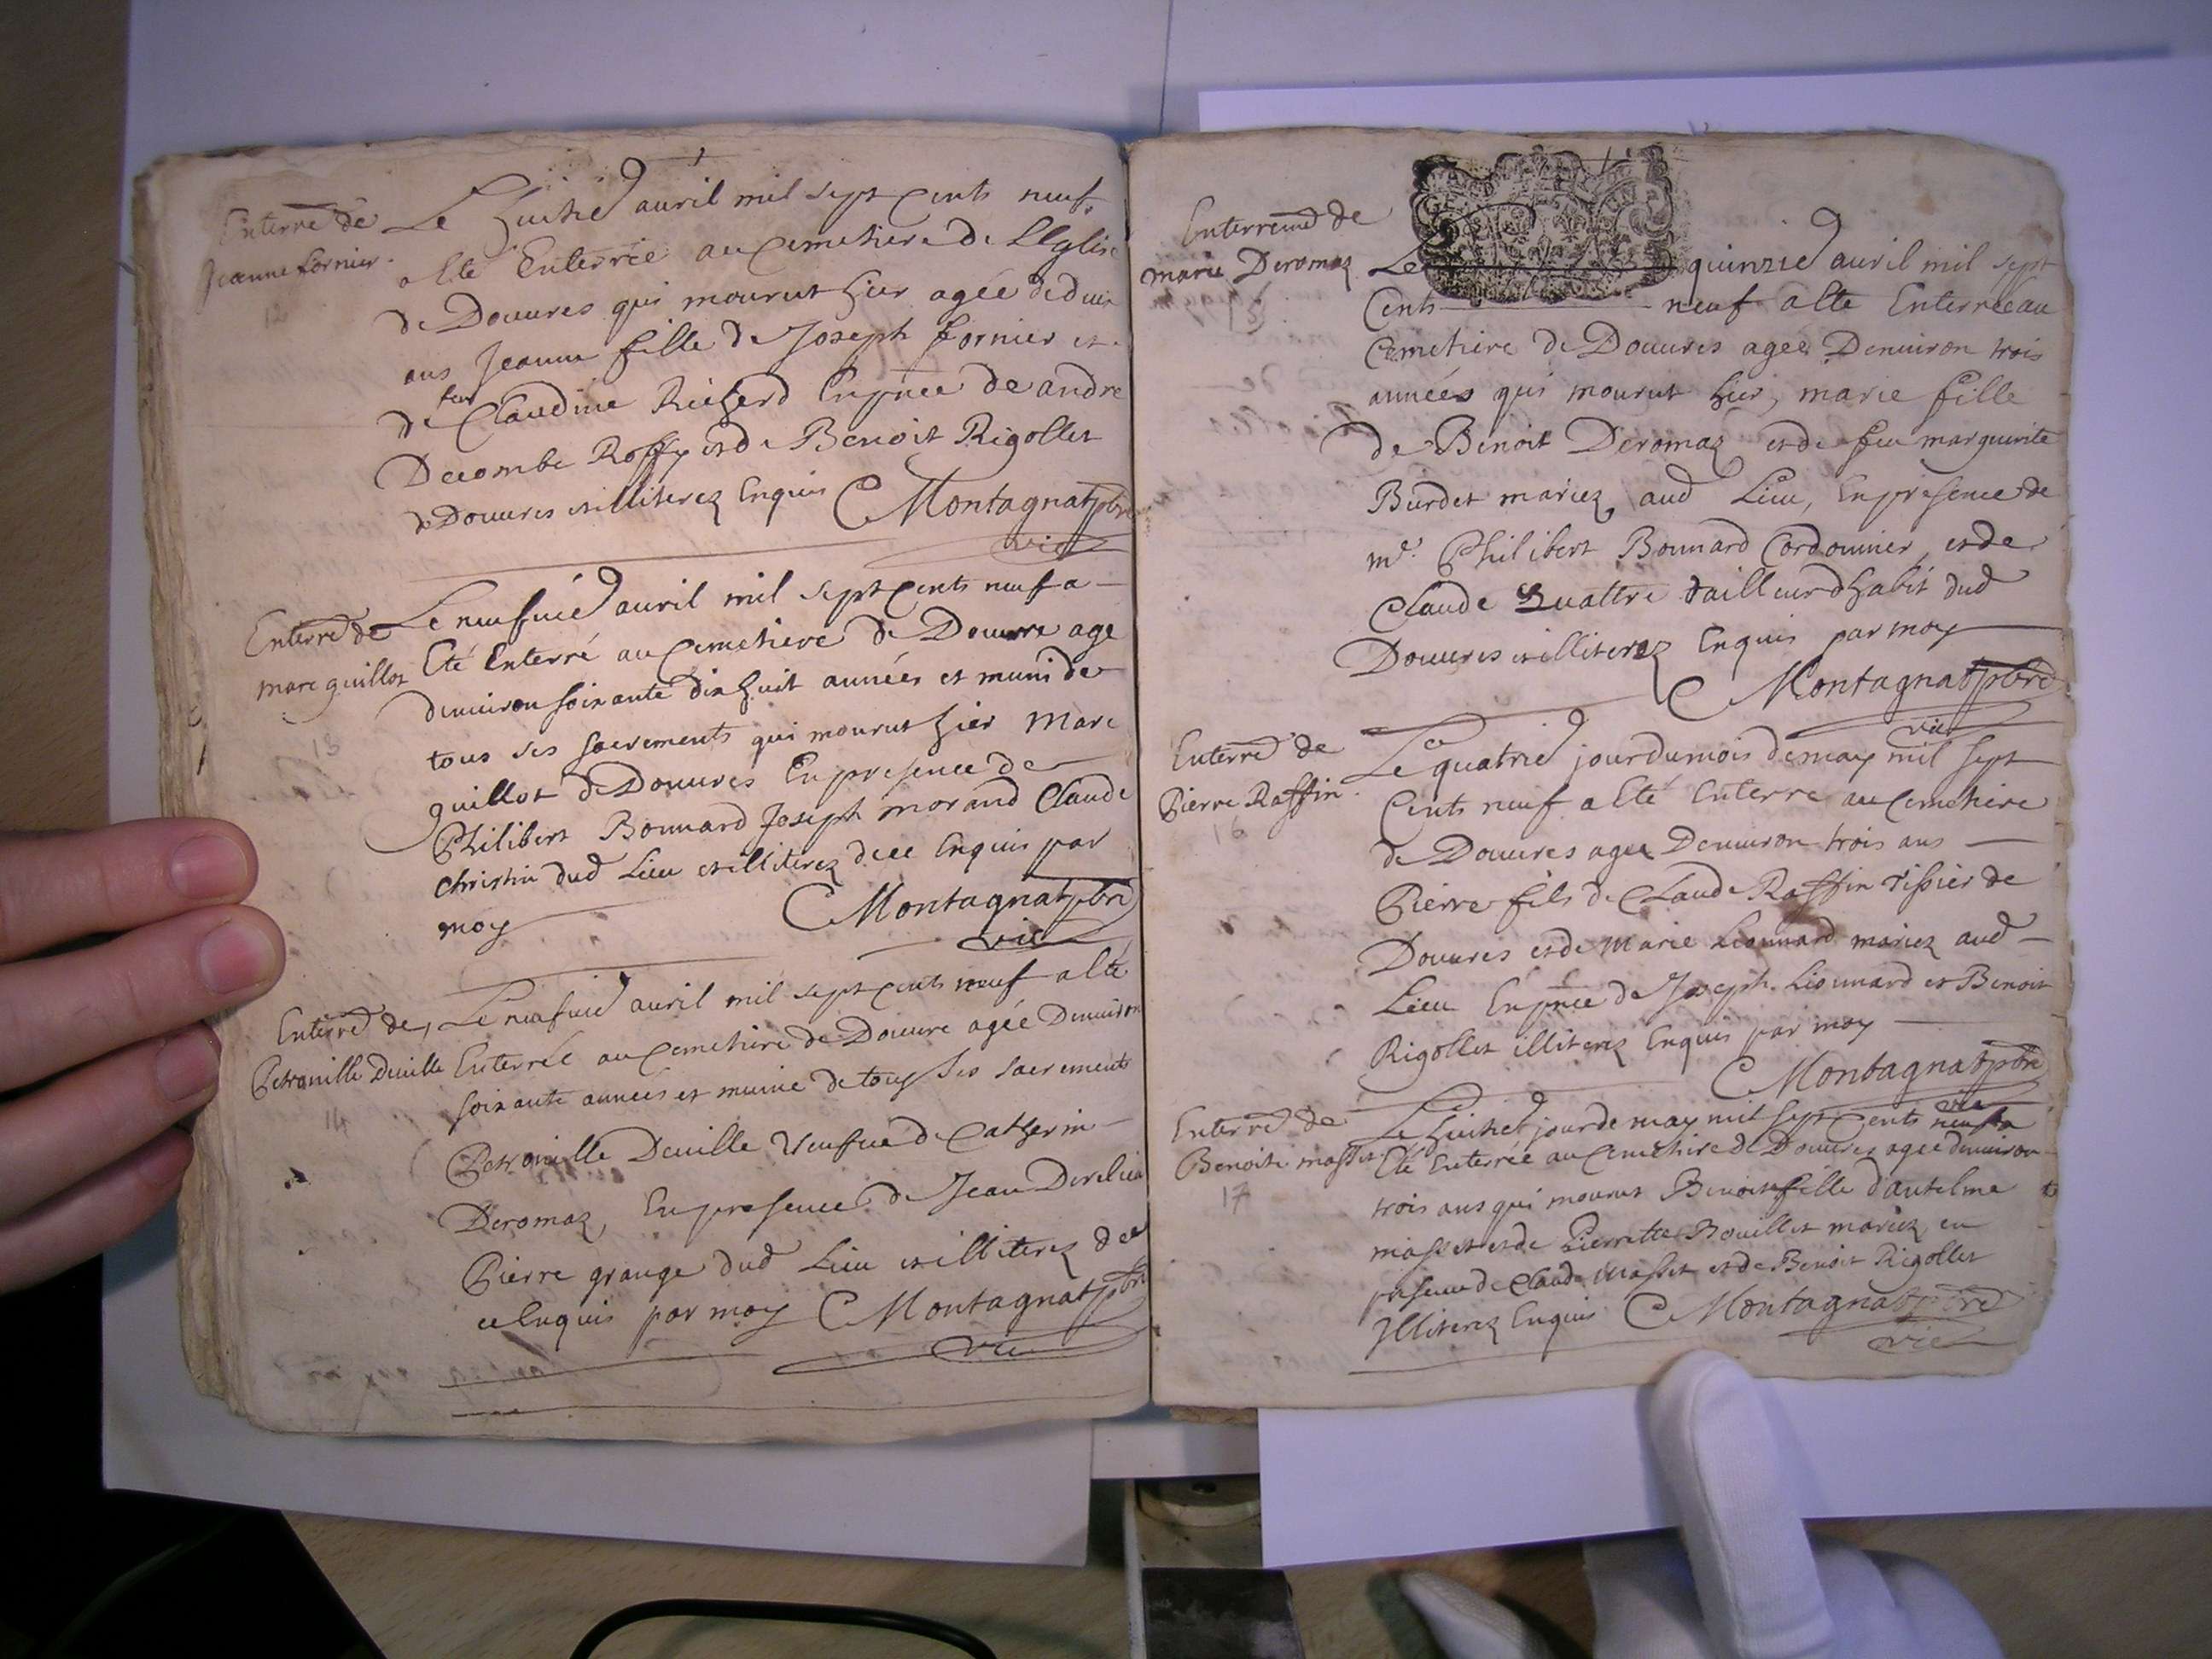 Enterre de
Jeanne fornier
12
Le huitie auril mil sept Cents neuf
a Eté Enterrée au Cemetiere de LEglise
de Douures qui mourut hier agée de deux
ans Jeanne fille de Joseph fornier et
feu
de Claudine Richerd En pnce de andre
Decombe Roffy et de Benoit Rigollet
de Douures et illiterez Enquis C Montagnat pbre
vic
Enterré de
marc guillot
13
Le neufuie auril mil sept Cents neuf a
Eté Enterré au Cemetiere de Douure age
denuiron soixante dix huit années et muni de
tous ses sacrements qui mourut hier Marc
guillot de Douures En presence de
Philibert Bonnard Joseph morand Claude
Christin dud Lieu et illiterez de ce Enquis par
moy C Montagnat pbre
vic
Enterre de
Petronille Deuille
14
Le neufuie auril mil sept Cents neuf a Eté
Enterrée au Cemetiere de Douure agée Denuiron
soixante années et munie de tous ses sacrements
Petronille Deuille Veufue de Catherin
Deromaz, En presence de Jean
Pierre grange dud Lieu et illiterez de
ce Enquis par moy C Montagnat pbre
vic
Enterremt de
marie Deromaz
Le quinzie auril mil sept
Cents neuf a Eté Enterrée au
Cemetiere de Douures agée Denuiron trois
années qui mourut hier, marie fille
de Benoit Deromaz et de feu marguerite
Burdet mariez aud Lieu, En presence de
me. Philibert Bonnard Cordonnier et de
Claude Quattre tailleur dhabit dud
Douures et illiterez Enquis par moy
C Montagnat pbre
vic
Enterre de
Pierre Raffin
16
Le quatrie jour du mois de may mil sept
Cents neuf a Eté Enterre au Cemetiere
de Douures agee Denuiron trois ans
Pierre fils de Claude Raffin tissier de
Douures et de Marie Lionnard mariez aud
Lieu En pnce de Joseph Lionnard et Benoit
Rigollet illiterez Enquis par moy
C Montagnat pbre
vic
Enterre de
Benoite masset
17
Le huitie jour de may mil sept Cents neuf a
Eté Enterrée au Cemetiere de Douures agee denuiron
trois ans qui mourut Benoite fille d'antelme
masset et de Pierrette Bouillet mariez en
presence de Claude Masset et de Benoit Rigollet
Illiterez Enquis C Montagnat pbre
vic